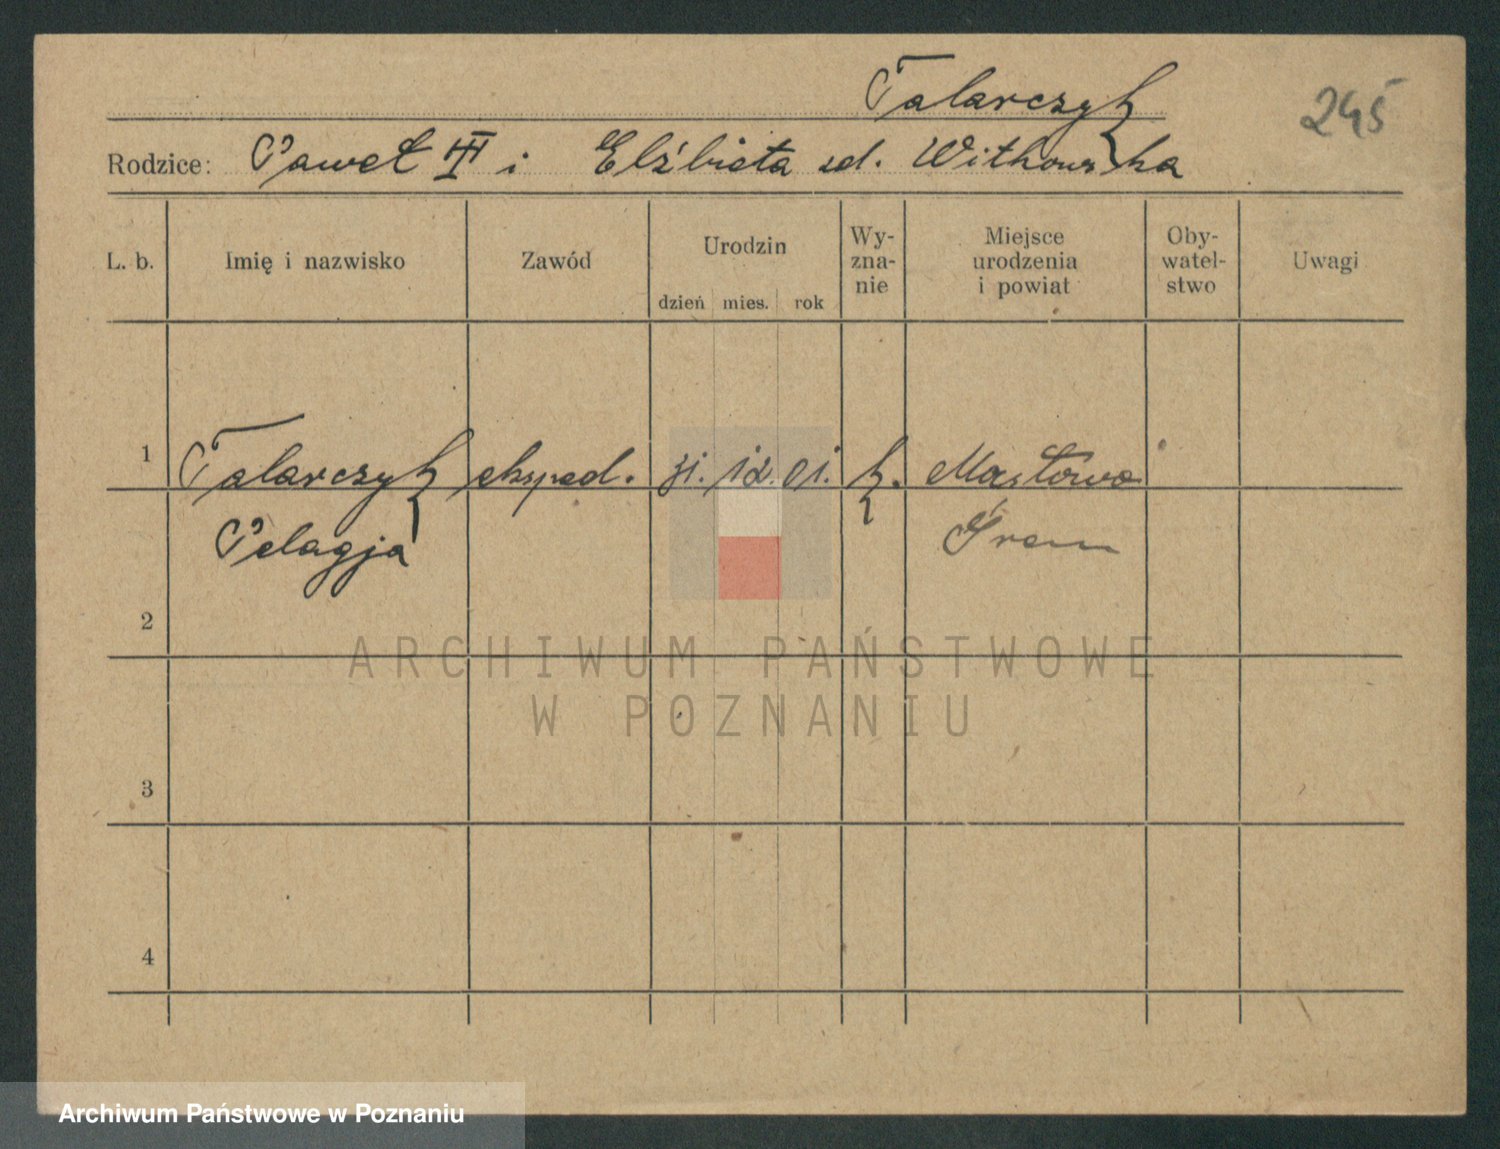 Talarczyk
245
Rodzice: Paweł i Elżbieta zd. Witkowska
L. b. Imię i nazwisko Zawód Urodzin dzień mies. rok Wyznanie Miejsce urodzenia i powiat Obywatelstwo Uwagi
1 Talarczyk eksped. 31. 12. 01. k. Masłowo
Pelagja Śrem
2
ARCHIWUM PAŃSTWOWE
W POZNANIU
3
4
Archiwum Państwowe w Poznaniu